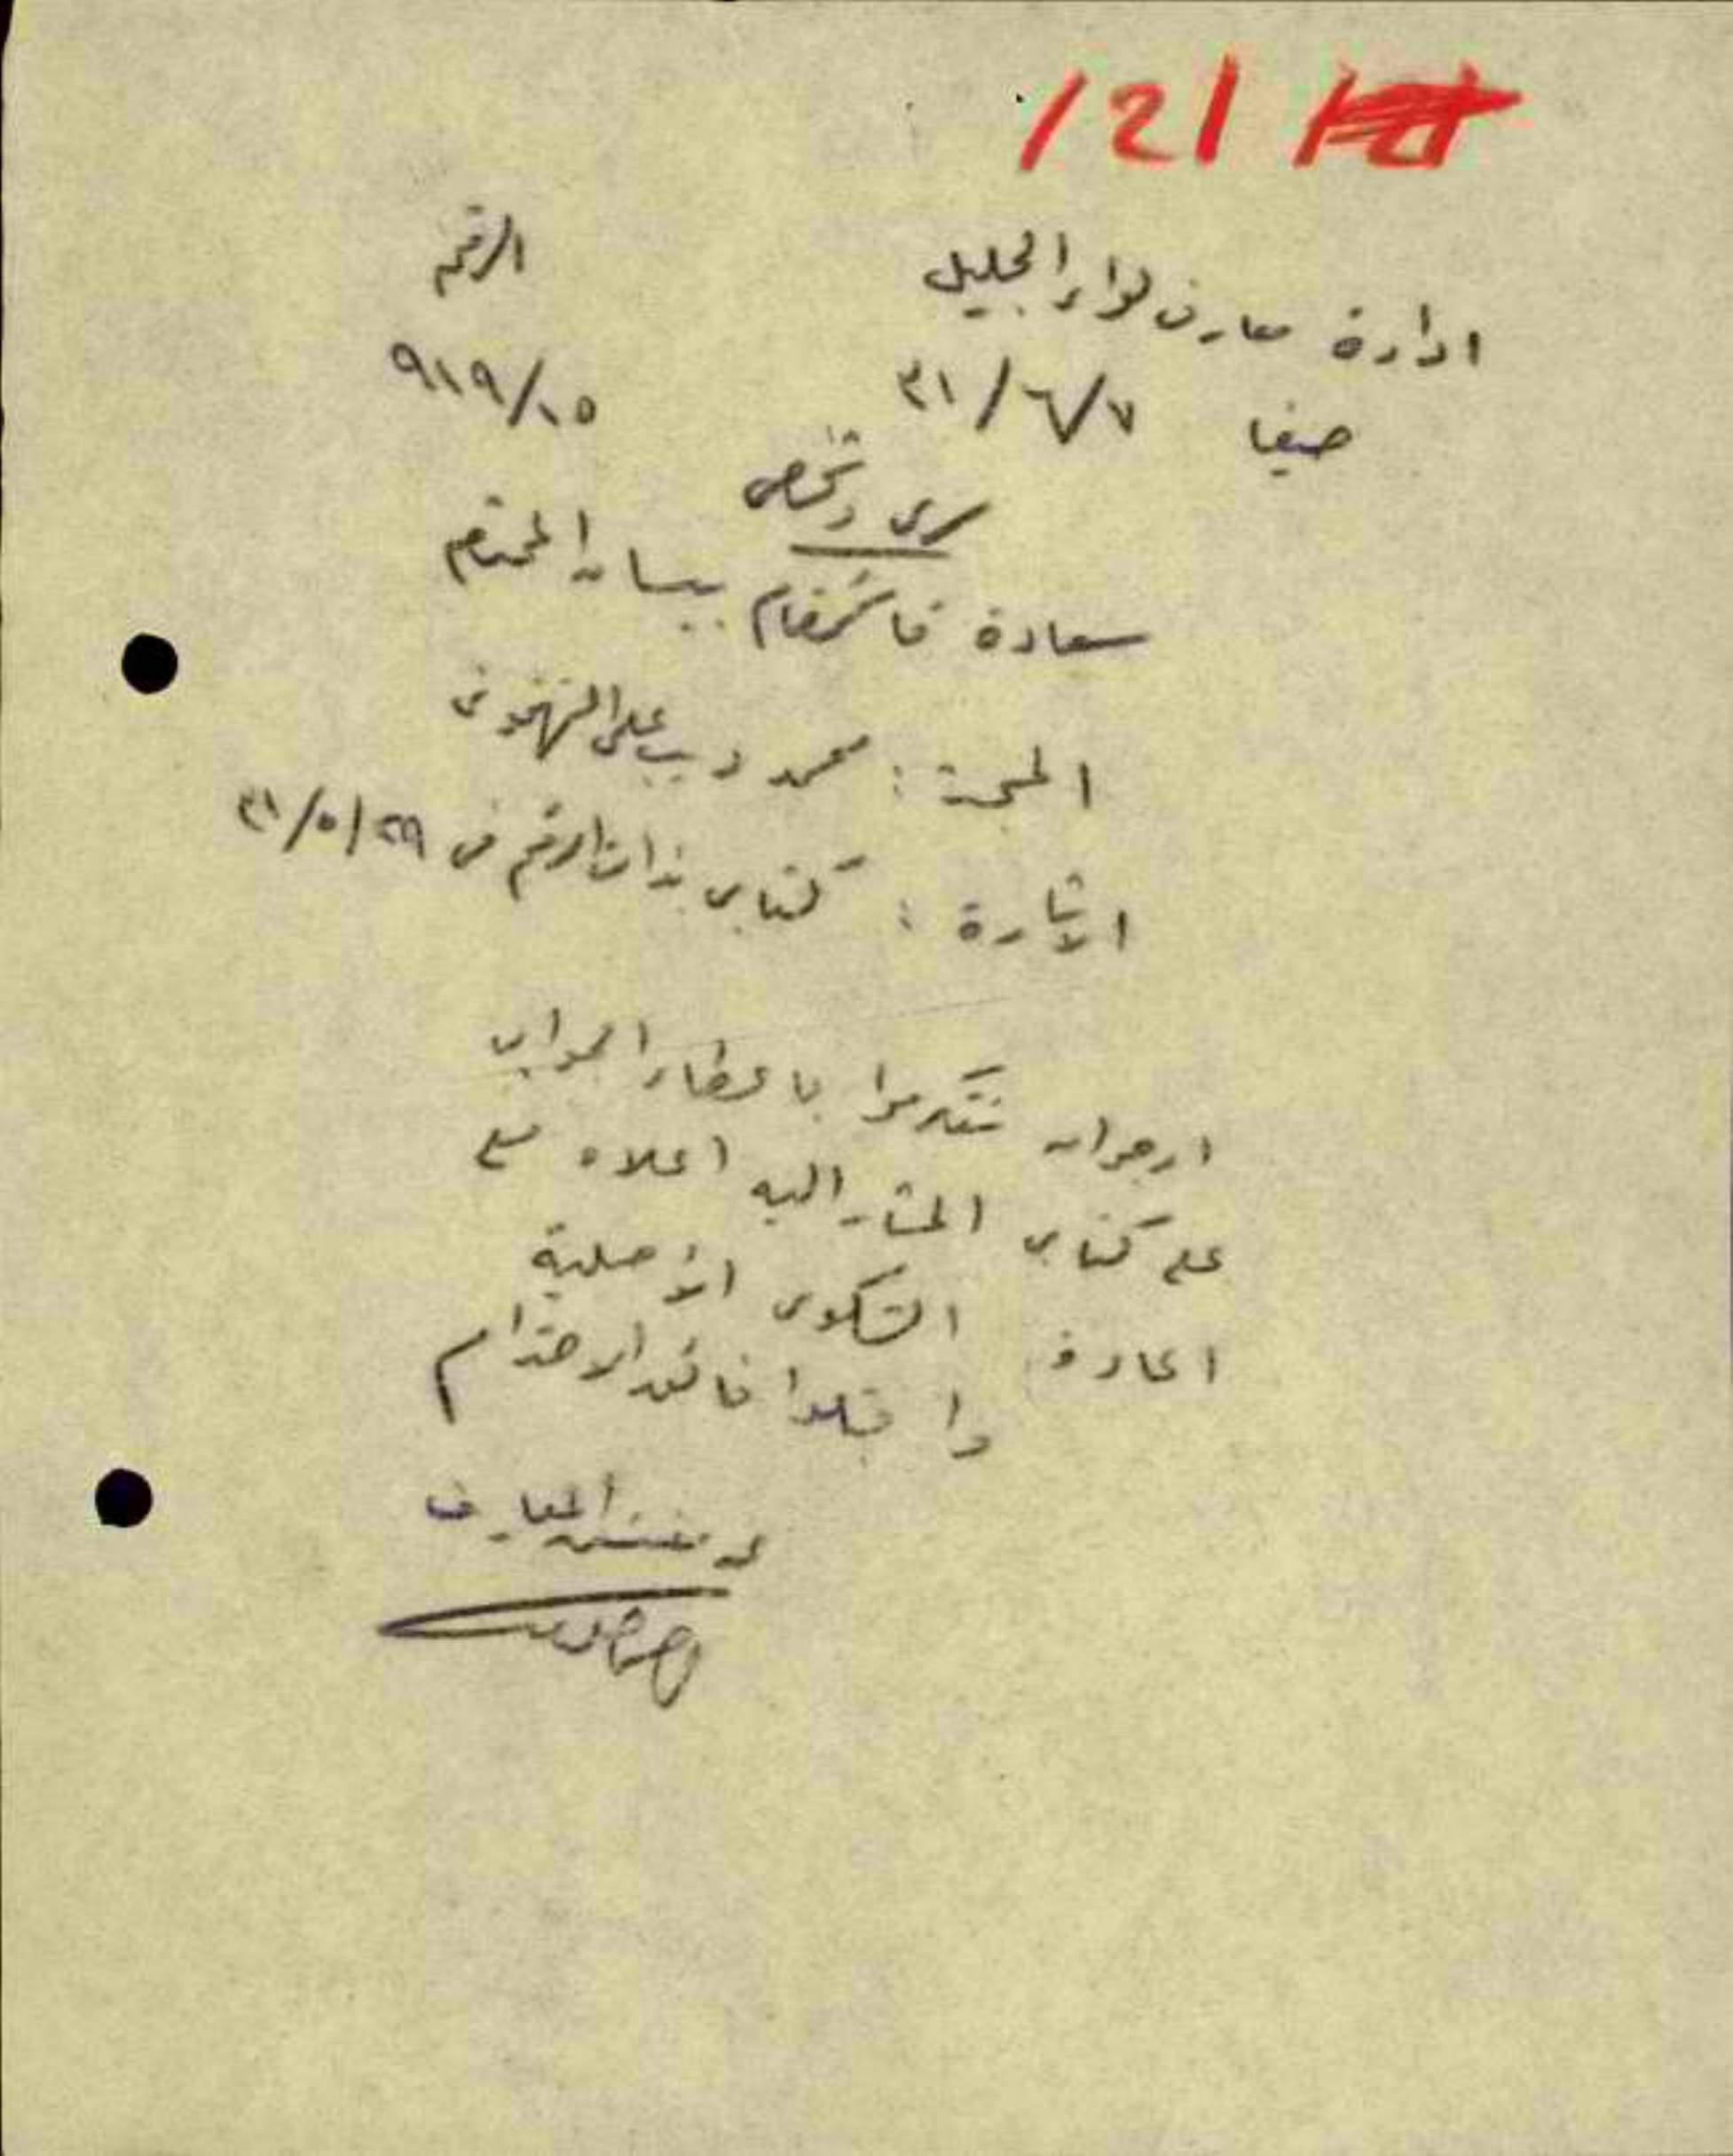 121
ادارة معارف لواء الجليل الرقم
حيفا ٧/٦/٣١ ٩١٩/١٥
سري وشخصي
سعادة قائمقام بيسان المحترم
المبحث : محمد ديب علي
الاشارة : كتابي ذات الرقم في ٢٩/٥/٣١
ارجو ان تتكرموا باعطاء الجواب
على كتابي المشار اليه اعلاه مع
اعادة الشكوى الأصلية
واقبلوا فائق الاحترام
عن مفتش المعارف